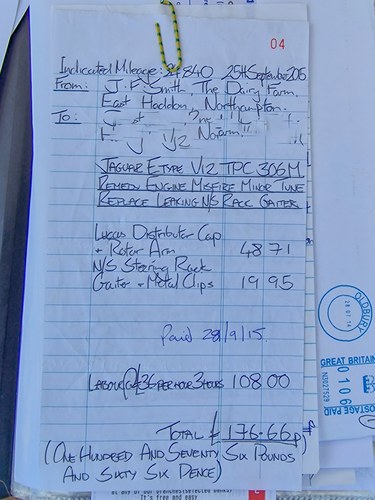 04
Indicated Mileage: 840 25th September 2015
From: J. F. Smith, The Dairy Farm,
East Haddon, Northampton.
To:
JAGUAR E TYPE V12 TPC 306M
REMEDY ENGINE MISFIRE MINOR TUNE
REPLACE LEAKING N/S RACK GAITER
Lucas Distributor Cap
+ Rotor Arm 48 71
N/S Steering Rack
Gaiter + Metal Clips 19 95
Paid 29/9/15.
LABOUR @ £36 PER HOUR 3 HOURS 108 00
TOTAL £ 176.66p
(ONE HUNDRED AND SEVENTY SIX POUNDS
AND SIXTY SIX PENCE)
OLDBURY
GREAT BRITAIN
0106
N2027529
POSTAGE PAID
It's free and easy